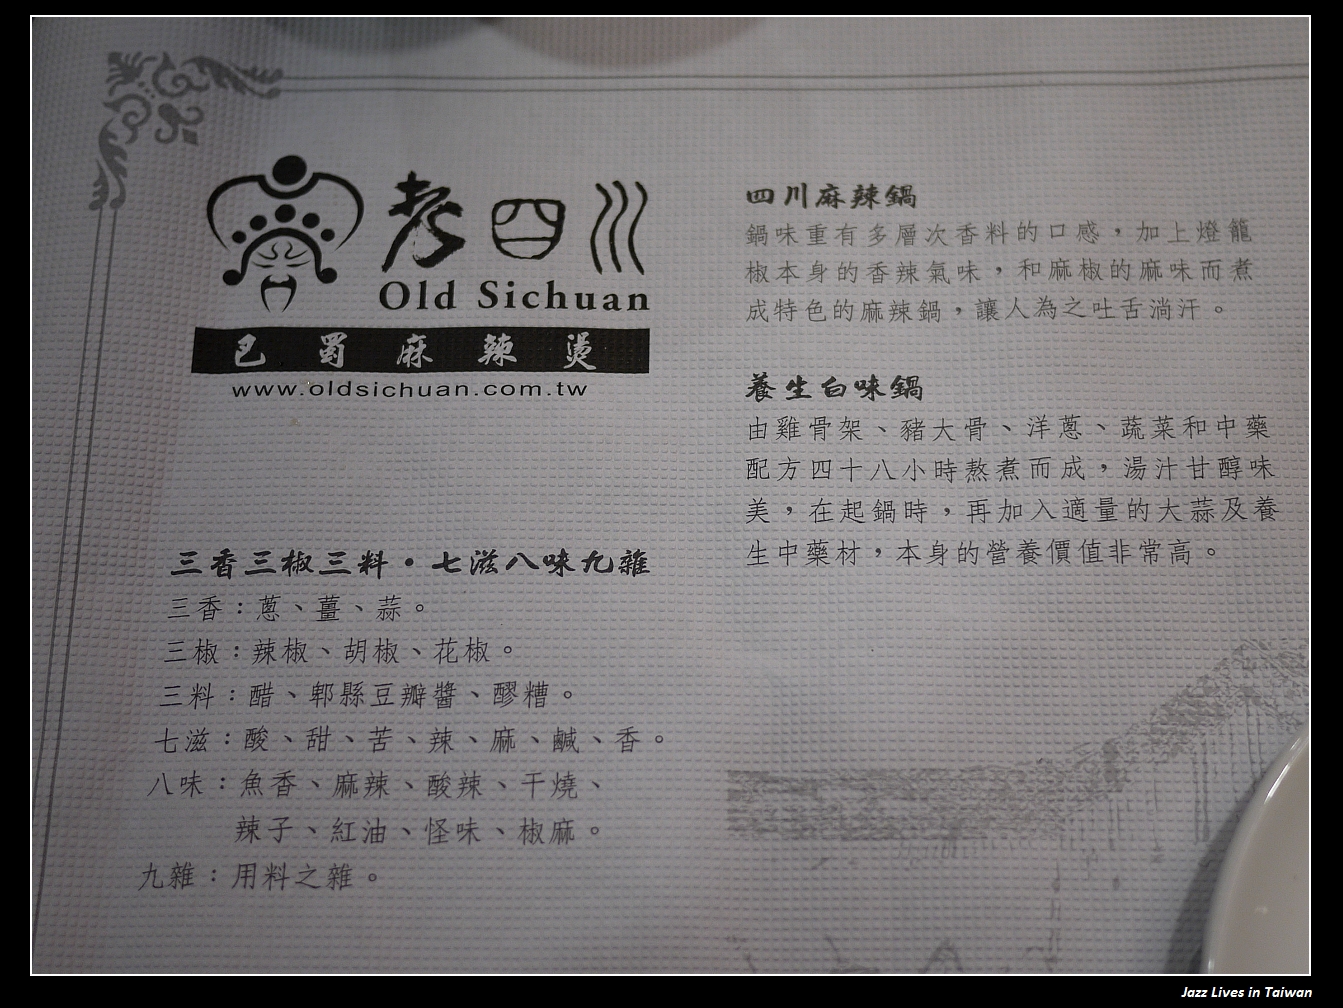 老四川
Old Sichuan
巴蜀麻辣燙
www.oldsichuan.com.tw
三香三椒三料・七滋八味九雜
三香：蔥、薑、蒜。
三椒：辣椒、胡椒、花椒。
三料：醋、郫縣豆瓣醬、醪糟。
七滋：酸、甜、苦、辣、麻、鹹、香。
八味：魚香、麻辣、酸辣、干燒、
辣子、紅油、怪味、椒麻。
九雜：用料之雜。
四川麻辣鍋
鍋味重有多層次香料的口感，加上燈籠
椒本身的香辣氣味，和麻椒的麻味而煮
成特色的麻辣鍋，讓人為之吐舌淌汗。
養生白味鍋
由雞骨架、豬大骨、洋蔥、蔬菜和中藥
配方四十八小時熬煮而成，湯汁甘醇味
美，在起鍋時，再加入適量的大蒜及養
生中藥材，本身的營養價值非常高。
Jazz Lives in Taiwan